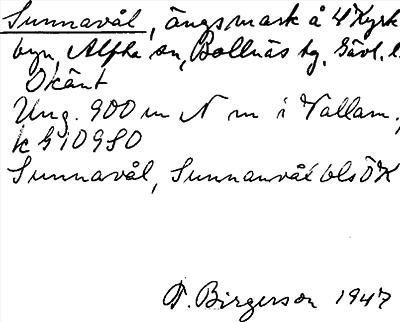 Sunnavål, ängsmark å 4 Kyrk
byn, Alfta sn, Bollnäs tg, Gävl. l.
Okänt
Ung. 900 m N m i Vallam.,
k G109SO
Sunnavål, Sunnanvål bls ÖK
F. Birgerson 1947